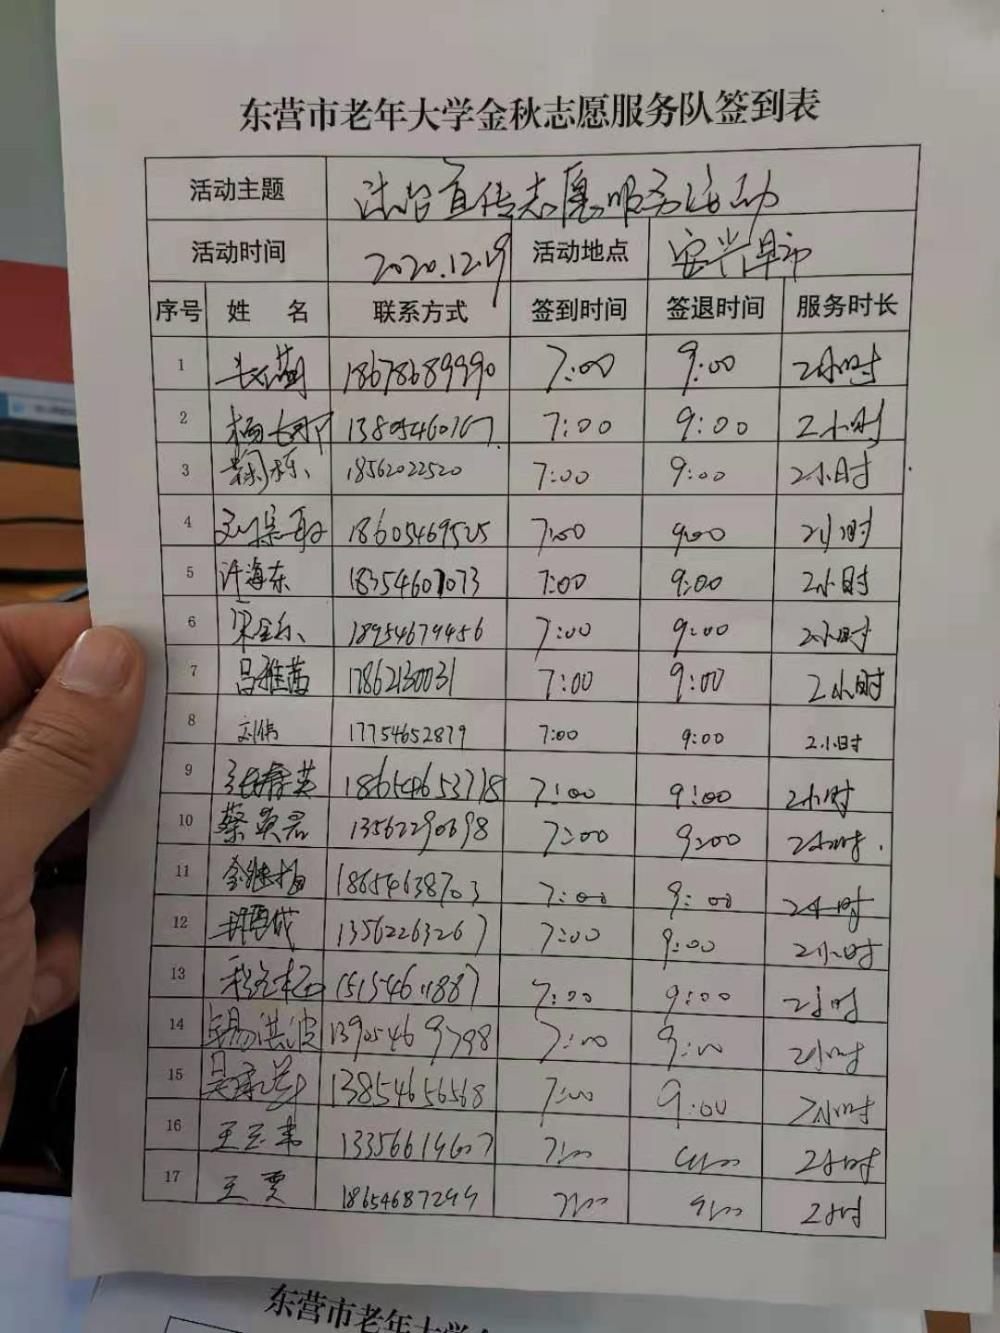 东营市老年大学金秋志愿服务队签到表
活动主题 法治宣传志愿服务活动
活动时间 2020.12.19 活动地点 安兴早市
序号 姓 名 联系方式 签到时间 签退时间 服务时长
1 18678689990 7:00 9:00 2小时
2 7:00 9:00 2小时
3 18562022520 7:00 9:00 2小时
4 18605469525 7:00 9:00 2小时
5 许海东 18354607073 7:00 9:00 2小时
6 18954679456 7:00 9:00 2小时
7 吕雅茜 17862130031 7:00 9:00 2小时
8 刘伟 17754652879 7:00 9:00 2小时
9 张春英 18654653718 7:00 9:00 2小时
10 蔡奠君 13562290698 7:00 9:00 2小时
11 18654638703 7:00 9:00 2小时
12 13562263267 7:00 9:00 2小时
13 15154611887 7:00 9:00 2小时
14 洪波 7:00 9:00 2小时
15 13854656568 7:00 9:00 2小时
16 13356619607 7:00 9:00 2小时
17 王贾 18654687299 7:00 9:00 2小时
东营市老年大学金